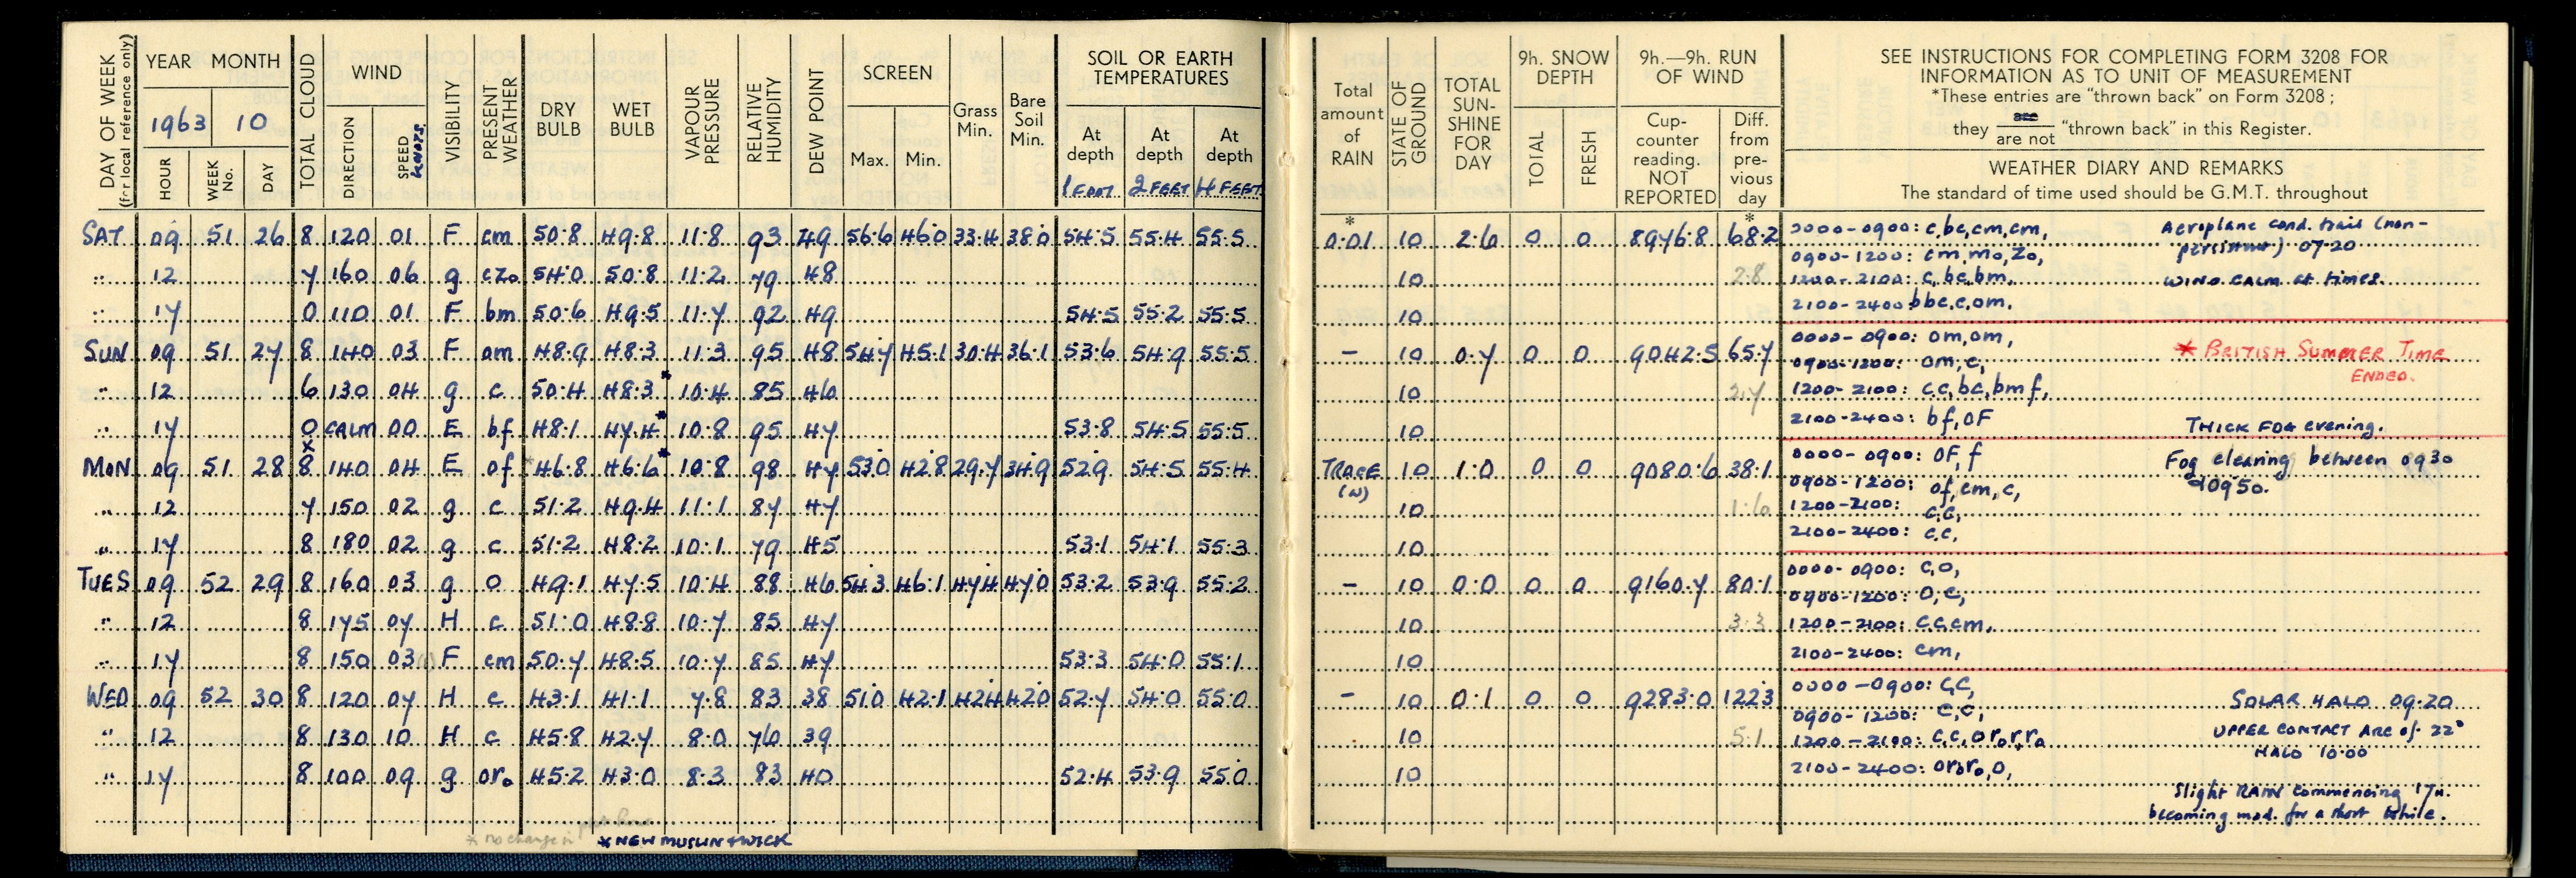 DAY OF WEEK (for local reference only) YEAR MONTH TOTAL CLOUD WIND VISIBILITY PRESENT WEATHER DRY BULB WET BULB VAPOUR PRESSURE RELATIVE HUMIDITY DEW POINT SCREEN Grass Min. Bare Soil Min. SOIL OR EARTH TEMPERATURES
1963 10
HOUR WEEK No. DAY DIRECTION SPEED KNOTS Max. Min. At depth 1 FOOT At depth 2 FEET At depth 4 FEET
SAT 09 51 26 8 120 01 F cm 50.8 49.8 11.8 93 49 56.6 46.0 33.4 38.0 54.5 55.4 55.5
" 12 7 160 06 g czo 54.0 50.8 11.2 79 48
" 17 0 110 01 F bm 50.6 49.5 11.7 92 49 54.5 55.2 55.5
SUN 09 51 27 8 140 03 F om 48.9 48.3 11.3 95 48 54.7 45.1 30.4 36.1 53.6 54.9 55.5
" 12 6 130 04 g c 50.4 48.3* 10.4 85 46
" 17 0 CALM 00 E bf 48.1 47.4* 10.8 95 47 53.8 54.5 55.5
x
MON 09 51 28 8 140 04 E of *46.8 46.6* 10.8 98 47 53.0 42.8 29.7 34.9 52.9 54.5 55.4
" 12 7 150 02 g c 51.2 49.4 11.1 87 47
" 17 8 180 02 g c 51.2 48.2 10.1 79 45 53.1 54.1 55.3
TUES 09 52 29 8 160 03 g o 49.1 47.5 10.4 88 46 54.3 46.1 47.4 47.0 53.2 53.9 55.2
" 12 8 175 07 H c 51.0 48.8 10.7 85 47
" 17 8 150 03 F cm 50.7 48.5 10.7 85 47 53.3 54.0 55.1
WED 09 52 30 8 120 07 H c 43.1 41.1 7.8 83 38 51.0 42.1 42.4 42.0 52.7 54.0 55.0
" 12 8 130 10 H c 45.8 42.7 8.0 76 39
" 17 8 100 09 g oro 45.2 43.0 8.3 83 40 52.4 53.9 55.0
* no change in
* NEW MUSLIN + WICK
Total amount of RAIN STATE OF GROUND TOTAL SUN-SHINE FOR DAY 9h. SNOW DEPTH TOTAL FRESH 9h.—9h. RUN OF WIND Cup-counter reading. NOT REPORTED Diff. from pre-vious day
SEE INSTRUCTIONS FOR COMPLETING FORM 3208 FOR
INFORMATION AS TO UNIT OF MEASUREMENT
*These entries are "thrown back" on Form 3208;
they are / are not "thrown back" in this Register.
WEATHER DIARY AND REMARKS
The standard of time used should be G.M.T. throughout
* *
0.01 10 2.6 0 0 8976.8 68.2 0000-0900: c,bc,cm,cm, Aeroplane cond. trail (non-
persistent) 07.20
0900-1200: cm,mo,zo,
10 2.8 1200-2100: c,bc,bm, WIND CALM at times.
10 2100-2400 bbc,c,om,
- 10 0.7 0 0 9042.5 65.7 0000-0900: om,om, * BRITISH SUMMER TIME
0900-1200: om,c, ENDED.
10 2.7 1200-2100: c,c,bc,bmf,
10 2100-2400: bf,oF THICK FOG evening.
TRACE 10 1.0 0 0 9080.6 38.1 0000-0900: OF,f Fog clearing between 0930
(w) 0900-1200: of,cm,c, 0950.
10 1.6 1200-2100: c,c,
10 2100-2400: c,c,
- 10 0.0 0 0 9160.7 80.1 0000-0900: c,o,
0900-1200: O,c,
10 3.3 1200-2100: c,c,cm,
10 2100-2400: cm,
- 10 0.1 0 0 9283.0 122.3 0000-0900: c,c, SOLAR HALO 09.20
0900-1200: c,c,
10 5.1 1200-2100: c,c,oro,r,ro UPPER CONTACT ARC of 22°
HALO 10.00
10 2100-2400: ororo,o,
Slight RAIN commencing 17h.
becoming mod. for a short while.